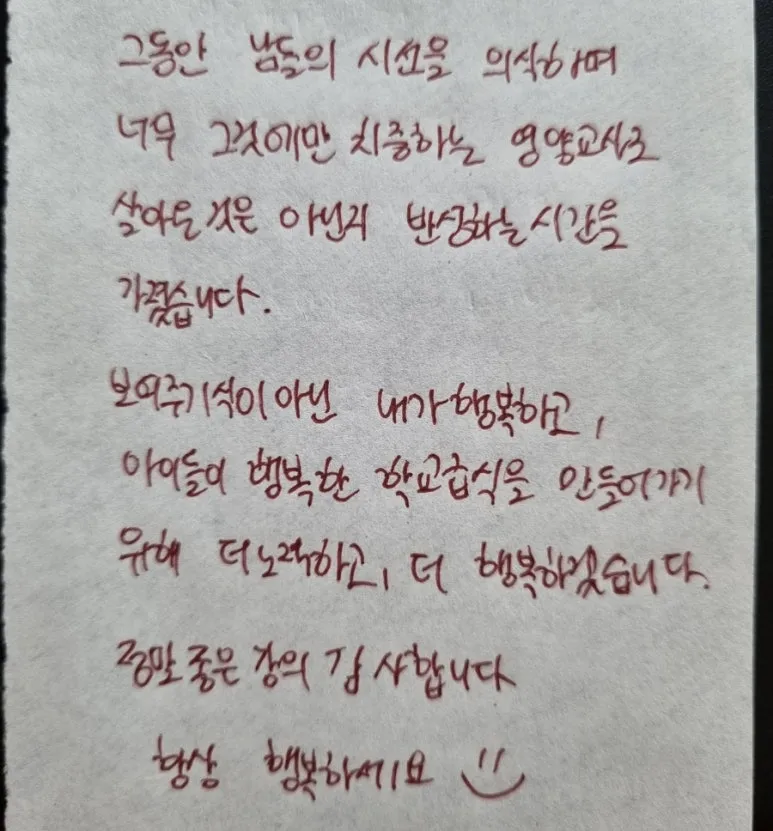 그동안 남들의 시선을 의식하며
너무 그것에만 치중하는 영양교사로
살아온것은 아닌지 반성하는시간을
가졌습니다.
보여주기식이아닌 내가행복하고,
아이들이 행복한 학교급식을 만들어가기
위해 더노력하고, 더 행복하겠습니다.
정말좋은강의 감사합니다
항상 행복하세요